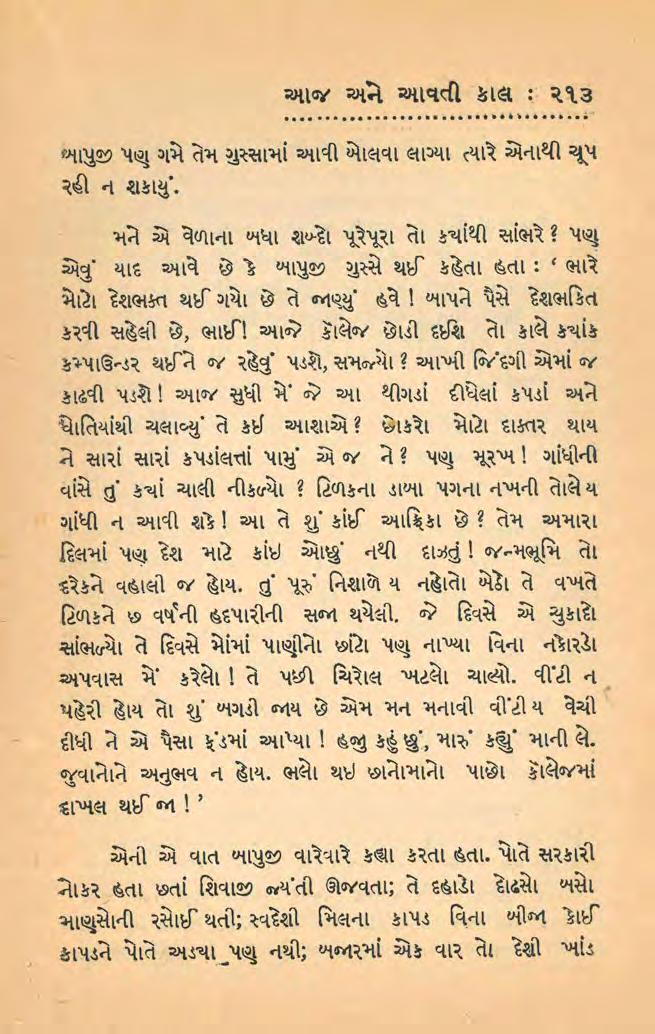 આજ અને આવતી કાલ : ૨૧૩
બાપુજી પણ ગમે તેમ ગુસ્સામાં આવી બોલવા લાગ્યા ત્યારે એનાથી ચૂપ
રહી ન શકાયું.
મને એ વેળાના બધા શબ્દો પૂરેપૂરા તો ક્યાંથી સાંભરે ? પણ
એવું યાદ આવે છે કે બાપુજી ગુસ્સે થઈ કહેતા હતા : ‘ ભારે
મોટો દેશભક્ત થઈ ગયો છે તે જાણ્યું હવે ! બાપને પૈસે દેશભકિત
કરવી સહેલી છે, ભાઈ! આજે કૉલેજ છોડી દઈશ તો કાલે ક્યાંક
કમ્પાઉન્ડર થઈને જ રહેવું પડશે, સમજ્યો ? આખી જિંદગી એમાં જ
કાઢવી પડશે ! આજ સુધી મેં જે આ થીગડાં દીધેલાં કપડાં અને
ધોતિયાંથી ચલાવ્યું તે કઈ આશાએ ? છોકરો મોટો દાક્તર થાય
ને સારાં સારાં કપડાંલત્તાં પામું એ જ ને ? પણ મૂરખ ! ગાંધીની
વાંસે તું ક્યાં ચાલી નીકળ્યો ? ટિળકના ડાબા પગના નખની તોલે ય
ગાંધી ન આવી શકે ! આ તે શું કાંઈ આફ્રિકા છે ? તેમ અમારા
દિલમાં પણ દેશ માટે કાંઇ ઓછું નથી દાઝતું ! જન્મભૂમિ તો
દરેકને વહાલી જ હોય. તું પૂરું નિશાળે ય નહોતો બેઠો તે વખતે
ટિળકને છ વર્ષની હદપારીની સજા થયેલી. જે દિવસે એ ચુકાદો
સાંભળ્યો તે દિવસે મોંમાં પાણીનો છાંટો પણ નાખ્યા વિના નકોરડો
અપવાસ મેં કરેલો ! તે પછી ચિરોલ ખટલો ચાલ્યો. વીંટી ન
પહેરી હોય તો શું બગડી જાય છે એમ મન મનાવી વીંટી ય વેચી
દીધી ને એ પૈસા ફંડમાં આપ્યા ! હજી કહું છું, મારું કહ્યું માની લે.
જુવાનોને અનુભવ ન હોય. ભલો થઇ છાનોમાનો પાછો કૉલેજમાં
દાખલ થઈ જા ! ’
એની એ વાત બાપુજી વારેવારે કહ્યા કરતા હતા. પોતે સરકારી
નોકર હતા છતાં શિવાજી જયંતી ઊજવતા; તે દહાડો દોઢસો બસો
માણસોની રસોઈ થતી; સ્વદેશી મિલના કાપડ વિના બીજા કોઈ
કાપડને પોતે અડચા પણ નથી; બજારમાં એક વાર તો દેશી ખાંડ